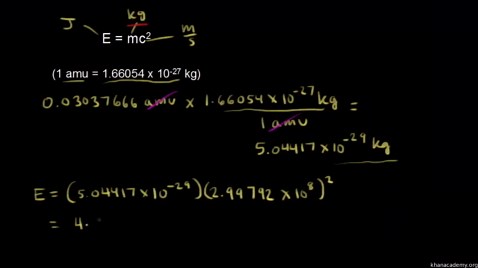 kg
J
E = mc²
m/s
(1 amu = 1.66054 x 10⁻²⁷ kg)
0.03037666 amu x 1.66054 x 10⁻²⁷ kg =
1 amu
5.04417 x 10⁻²⁹ kg
E = (5.04417 x 10⁻²⁹)(2.99792 x 10⁸)²
= 4.
khanacademy.org